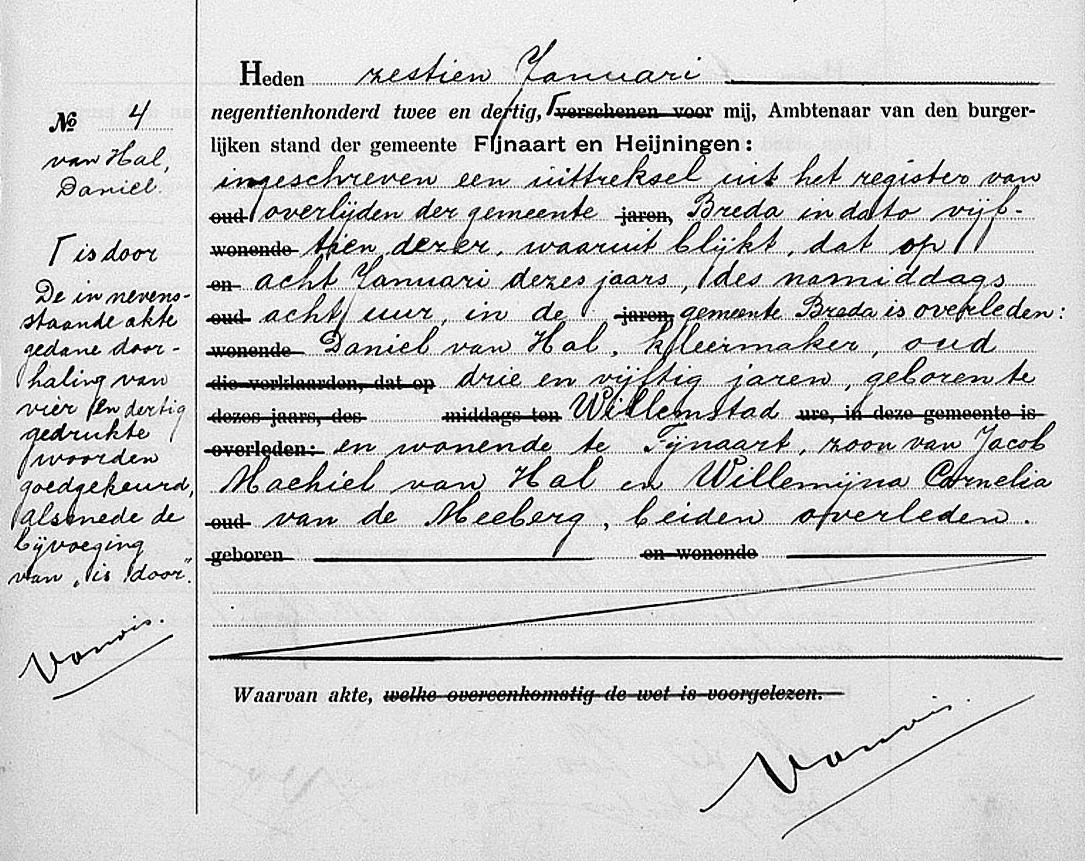 Nº 4
van Hal,
Daniel.
Γ is door
De in nevens-
staande akte
gedane door-
haling van
vier en dertig
gedrukte
woorden
goedgekeurd,
alsmede de
bijvoeging
van „is door".
Heden zestien Januari
negentienhonderd twee en dertig, Γ verschenen voor mij, Ambtenaar van den burger-
lijken stand der gemeente Fijnaart en Heijningen:
ingeschreven een uittreksel uit het register van
oud overlijden der gemeente jaren, Breda in dato vijf-
wonende tien dezer, waaruit blijkt, dat op
en acht Januari dezes jaars, des namiddags
oud acht uur, in de jaren, gemeente Breda is overleden:
wonende Daniel van Hal, kleermaker, oud
die verklaarden, dat op drie en vijftig jaren, geboren te
dezes jaars, des middags ten Willemstad ure, in deze gemeente is
overleden: en wonende te Fijnaart, zoon van Jacob
Machiel van Hal en Willemijna Cornelia
oud van de Meeberg, beiden overleden.
geboren en wonende
Waarvan akte, welke overeenkomstig de wet is voorgelezen.